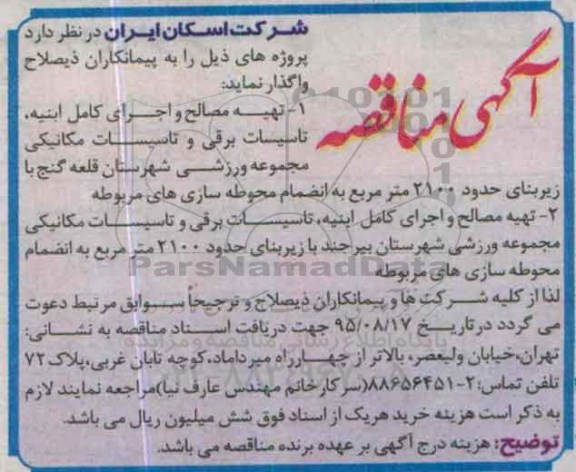 آگهی مناقصه
شرکت اسکان ایران در نظر دارد
پروژه های ذیل را به پیمانکاران ذیصلاح
واگذار نماید:
۱- تهیه مصالح و اجرای کامل ابنیه،
تاسیسات برقی و تاسیسات مکانیکی
مجموعه ورزشی شهرستان قلعه گنج با
زیربنای حدود ۲۱۰۰ متر مربع به انضمام محوطه سازی های مربوطه
۲- تهیه مصالح و اجرای کامل ابنیه، تاسیسات برقی و تاسیسات مکانیکی
مجموعه ورزشی شهرستان بیرجند با زیربنای حدود ۲۱۰۰ متر مربع به انضمام
محوطه سازی های مربوطه
ParsNamadData
لذا از کلیه شرکت ها و پیمانکاران ذیصلاح و ترجیحاً سوابق مرتبط دعوت
می گردد در تاریخ ۹۵/۰۸/۱۷ جهت دریافت اسناد مناقصه به نشانی:
تهران، خیابان ولیعصر، بالاتر از چهارراه میرداماد، کوچه تابان غربی، پلاک ۷۲
تلفن تماس: ۲-۸۸۶۵۶۴۵۱ (سرکار خانم مهندس عارف نیا) مراجعه نمایند لازم
به ذکر است هزینه خرید هریک از اسناد فوق شش میلیون ریال می باشد.
توضیح: هزینه درج آگهی بر عهده برنده مناقصه می باشد.